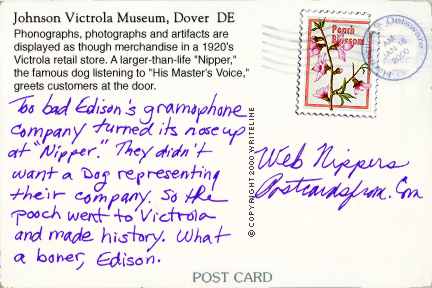 Johnson Victrola Museum, Dover DE
Phonographs, photographs and artifacts are
displayed as though merchandise in a 1920's
Victrola retail store. A larger-than-life "Nipper,"
the famous dog listening to "His Master's Voice,"
greets customers at the door.
Too bad Edison's gramophone
company turned its nose up
at "Nipper." They didn't
want a Dog representing
their company. So the
pooch went to Victrola
and made history. What
a boner, Edison.
© COPYRIGHT 2000 WRITELINE
Peach
Blossom
Delaware
2000
Web Nippers
Postcardsfrom.Com
POST CARD